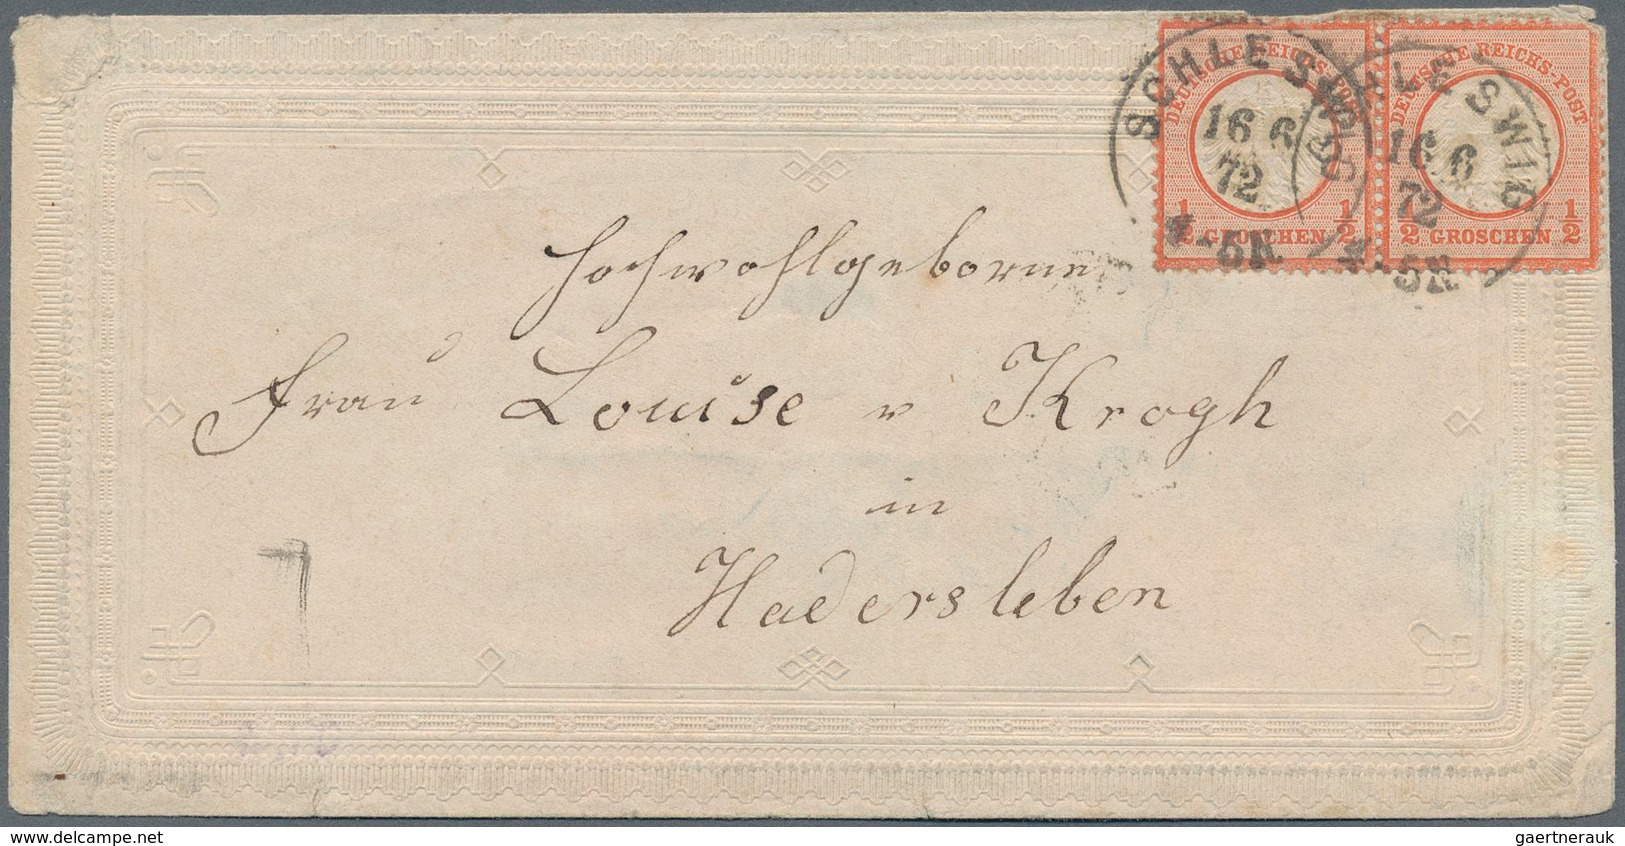 DEUTSCHE REICHS-POST
1/2 GROSCHEN 1/2
DEUTSCHE REICHS-POST
1/2 GROSCHEN 1/2
SCHLESWIG
16 6
72
4-5N
SCHLESWIG
16 6
72
4-5N
Hochwohlgeborne
Frau Louise v Krogh
in
Hadersleben
delcampe.net
gaertnerauk